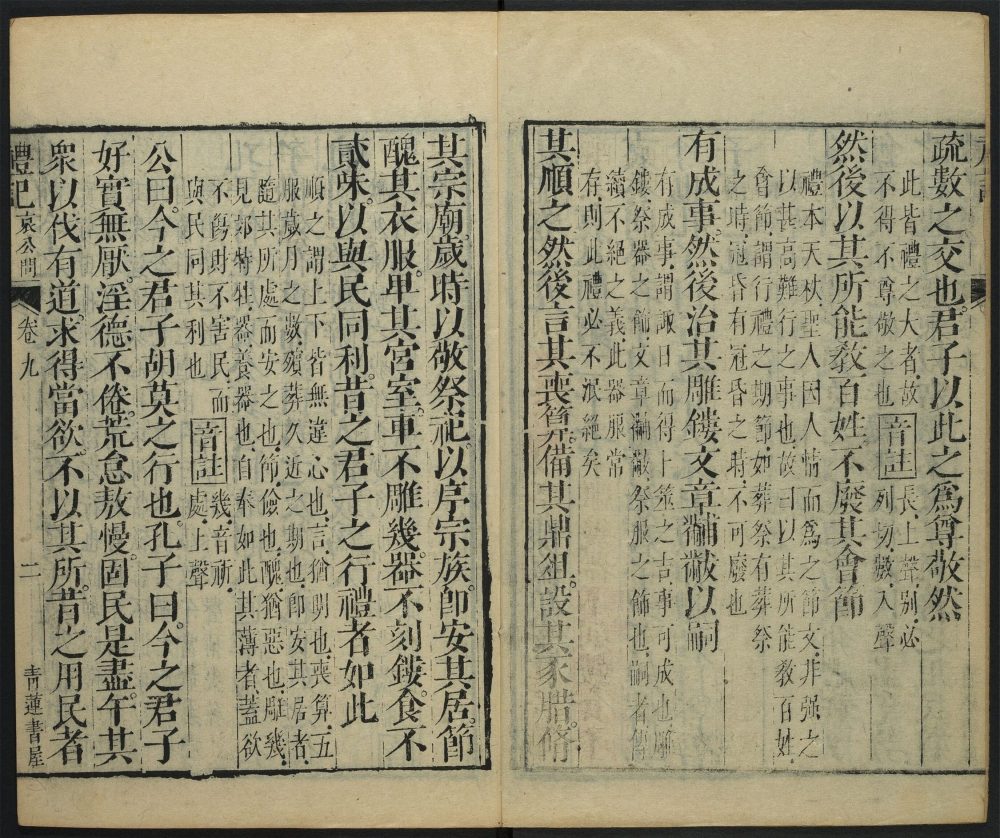 疏數之交也君子以此之爲尊敬然
此皆禮之大者故
不得不尊敬之也
音註
長上聲别必
列切數入聲
然後以其所能敎百姓不廢其會節
禮本天秩聖人因人情而爲之節文非强之
以甚高難行之事也故曰以其所能敎百姓
會節謂行禮之期節如葬祭有葬祭
之時冠昏有冠昏之時不可廢也
有成事然後治其雕鏤文章黼黻以嗣
有成事謂諏日而得卜筮之吉事可成也雕
鏤祭器之飾文章黼黻祭服之飾也嗣者傳
續不絕之義此器服常
存則此禮必不泯絕矣
其順之然後言其喪筭備其鼎俎設其豕腊脩
其宗廟歲時以敬祭祀以序宗族卽安其居節
醜其衣服卑其宮室車不雕幾器不刻鏤食不
貳味以與民同利昔之君子之行禮者如此
順之謂上下皆無違心也言猶明也喪算五
服歲月之數殯葬久近之期也卽安其居者
隨其所處而安之也節儉也醜猶惡也雕幾
見郊特牲器養器也自奉如此其薄者蓋欲
不傷財不害民而
與民同其利也
音註
幾音祈
處上聲
公曰今之君子胡莫之行也孔子曰今之君子
好實無厭淫德不倦荒怠敖慢固民是盡午其
衆以伐有道求得當欲不以其所昔之用民者
禮記
哀公問
卷九
二
青蓮書屋